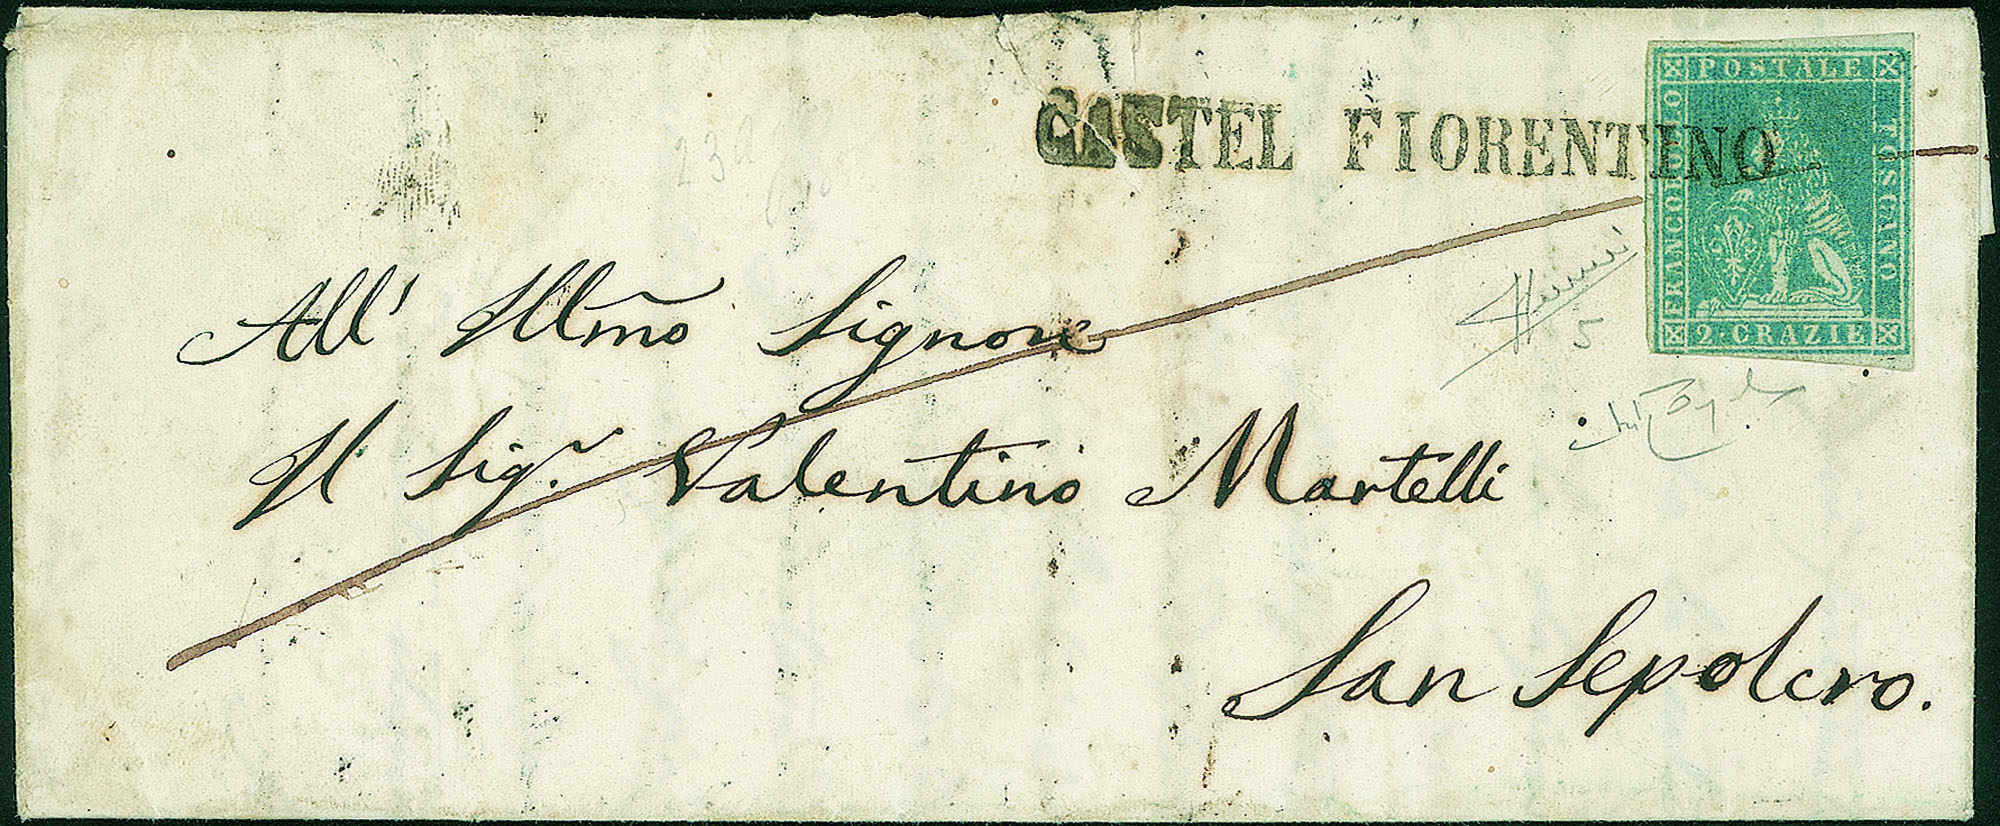 CASTEL FIORENTINO
FRANCOBOLLO POSTALE TOSCANO
2 CRAZIE
23a
All' Illm̃o Signore
Il Sig.r Valentino Martelli
San Sepolcro.
5